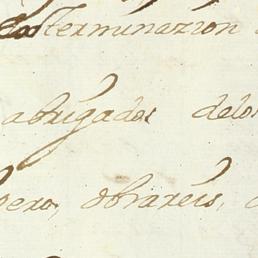 determinazion
abrigados delos
pero, obrareis,